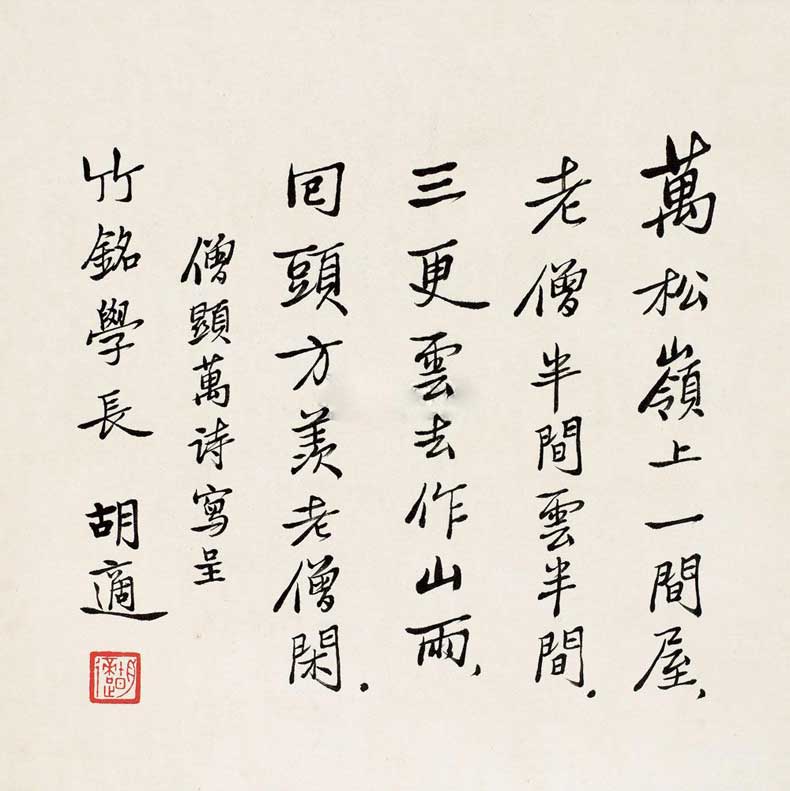 萬松嶺上一間屋、
老僧半間雲半間.
三更雲去作山雨、
囘頭方羨老僧閑.
僧顯萬詩寫呈
竹銘學長 胡適
胡適